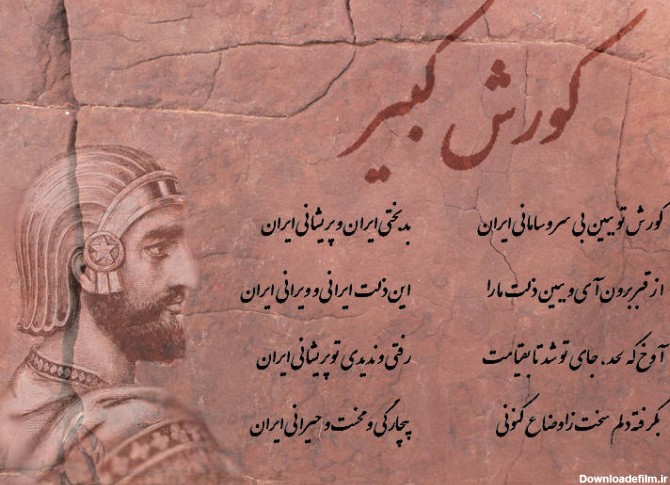 کورش کبیر
کورش تو ببین بی سر و سامانی ایران بدبختی ایران و پریشانی ایران
از قبر برون آی و ببین ذلت ما را این ذلت ایرانی و ویرانی ایران
آوخ که لحد، جای تو شد تا بقیامت رفتی و ندیدی تو پریشانی ایران
بگرفته دلم سخت ز اوضاع کنونی بیچارگی و محنت و حیرانی ایران
Downloadefilm.ir